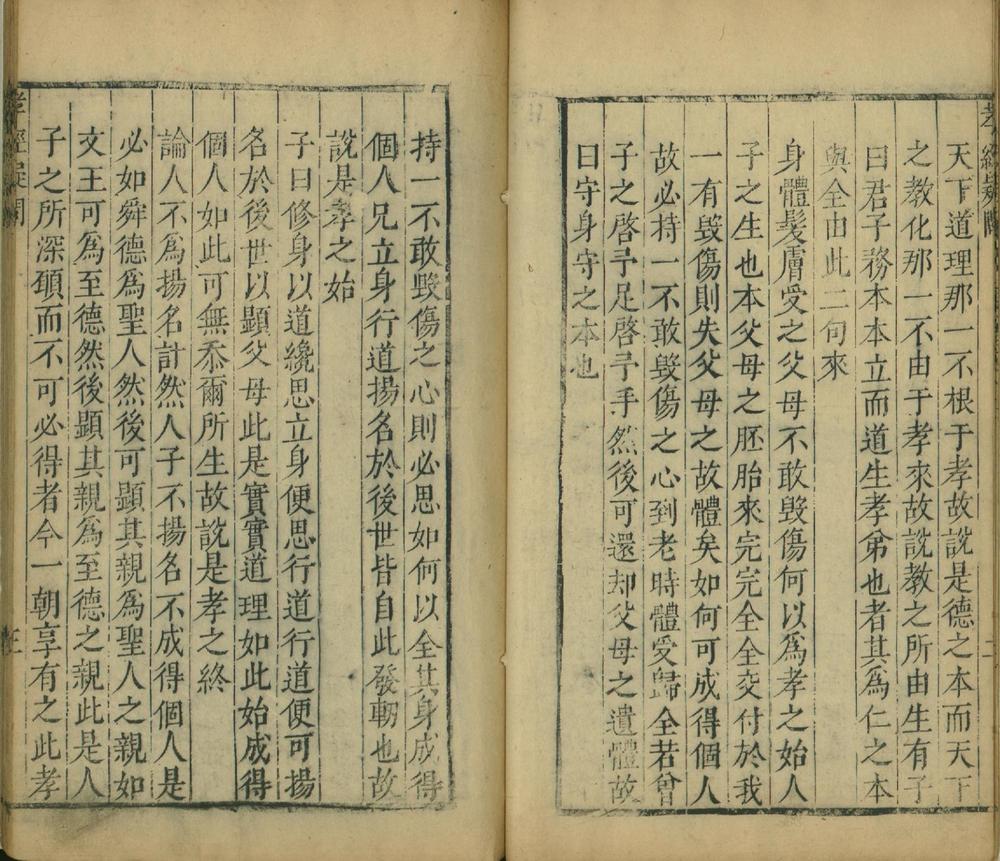 天下道理那一不根于孝故說是德之本而天下
之教化那一不由于孝來故說教之所由生有子
曰君子務本本立而道生孝弟也者其為仁之本
與全由此二句來
身體髮膚受之父母不敢毀傷何以爲孝之始人
子之生也本父母之胚胎來完完全全交付於我
一有毀傷則失父母之故體矣如何可成得個人
故必持一不敢毀傷之心到老時體受歸全若曾
子之啓予足啓予手然後可還却父母之遺體故
曰守身守之本也
孝經疑問
二
持一不敢毀傷之心則必思如何以全其身成得
個人兄立身行道揚名於後世皆自此發軔也故
說是孝之始
子曰修身以道纔思立身便思行道行道便可揚
名於後世以顯父母此是實實道理如此始成得
個人如此可無忝爾所生故說是孝之終
論人不爲揚名計然人子不揚名不成得個人是
必如舜德爲聖人然後可顯其親爲聖人之親如
文王可爲至德然後顯其親爲至德之親此是人
子之所深頌而不可必得者今一朝享有之此孝
孝經疑問
三